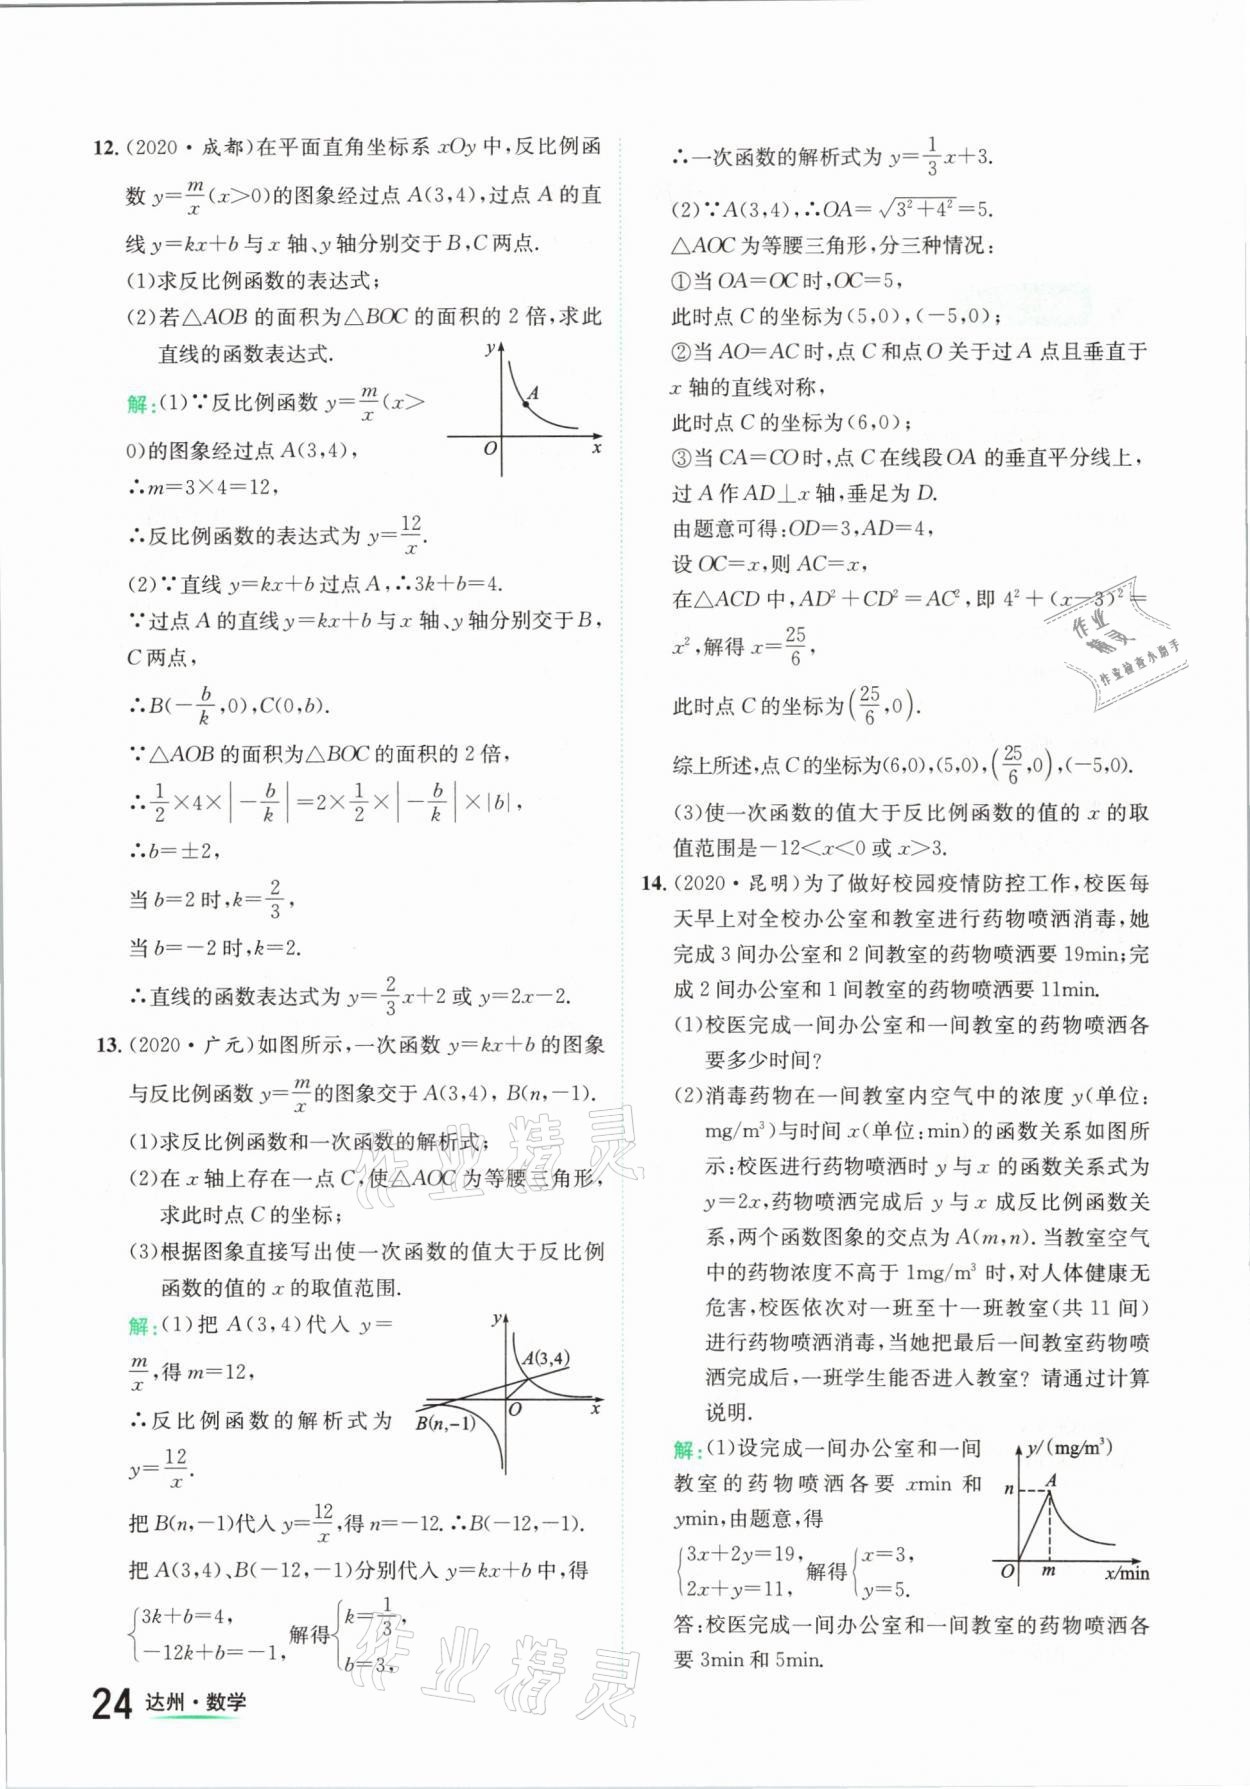 12. (2020·成都)在平面直角坐标系 xOy 中,反比例函
数 y=m/x(x>0)的图象经过点 A(3,4),过点 A 的直
线 y=kx+b 与 x 轴、y 轴分别交于 B,C 两点.
(1)求反比例函数的表达式;
(2)若△AOB 的面积为△BOC 的面积的 2 倍,求此
直线的函数表达式.
解:(1)∵反比例函数 y=m/x(x>
0)的图象经过点 A(3,4),
∴m=3×4=12,
∴反比例函数的表达式为 y=12/x.
(2)∵直线 y=kx+b 过点 A,∴3k+b=4.
∵过点 A 的直线 y=kx+b 与 x 轴、y 轴分别交于 B,
C 两点,
∴B(-b/k,0),C(0,b).
∵△AOB 的面积为△BOC 的面积的 2 倍,
∴1/2×4×|-b/k|=2×1/2×|-b/k|×|b|,
∴b=±2,
当 b=2 时,k=2/3,
当 b=-2 时,k=2.
∴直线的函数表达式为 y=2/3x+2 或 y=2x-2.
y
A
O
x
13. (2020·广元)如图所示,一次函数 y=kx+b 的图象
与反比例函数 y=m/x的图象交于 A(3,4), B(n,-1).
(1)求反比例函数和一次函数的解析式;
(2)在 x 轴上存在一点 C,使△AOC 为等腰三角形,
求此时点 C 的坐标;
(3)根据图象直接写出使一次函数的值大于反比例
函数的值的 x 的取值范围.
解:(1)把 A(3,4)代入 y=
m/x,得 m=12,
∴反比例函数的解析式为
y=12/x.
y
A(3,4)
B(n,-1)
O
x
把 B(n,-1)代入 y=12/x,得 n=-12.∴B(-12,-1).
把 A(3,4)、B(-12,-1)分别代入 y=kx+b 中,得
{3k+b=4, -12k+b=-1, 解得{k=1/3, b=3,
∴一次函数的解析式为 y=1/3x+3.
(2)∵A(3,4),∴OA=√(3²+4²)=5.
△AOC 为等腰三角形,分三种情况:
①当 OA=OC 时,OC=5,
此时点 C 的坐标为(5,0),(-5,0);
②当 AO=AC 时,点 C 和点 O 关于过 A 点且垂直于
x 轴的直线对称,
此时点 C 的坐标为(6,0);
③当 CA=CO 时,点 C 在线段 OA 的垂直平分线上,
过 A 作 AD⊥x 轴,垂足为 D.
由题意可得:OD=3,AD=4,
设 OC=x,则 AC=x,
在△ACD 中,AD²+CD²=AC²,即 4²+(x-3)²=
x²,解得 x=25/6,
此时点 C 的坐标为(25/6,0).
综上所述,点 C 的坐标为(6,0),(5,0),(25/6,0),(-5,0).
(3)使一次函数的值大于反比例函数的值的 x 的取
值范围是-12<x<0 或 x>3.
14. (2020·昆明)为了做好校园疫情防控工作,校医每
天早上对全校办公室和教室进行药物喷洒消毒,她
完成 3 间办公室和 2 间教室的药物喷洒要 19min;完
成 2 间办公室和 1 间教室的药物喷洒要 11min.
(1)校医完成一间办公室和一间教室的药物喷洒各
要多少时间?
(2)消毒药物在一间教室内空气中的浓度 y(单位:
mg/m³)与时间 x(单位:min)的函数关系如图所
示:校医进行药物喷洒时 y 与 x 的函数关系式为
y=2x,药物喷洒完成后 y 与 x 成反比例函数关
系,两个函数图象的交点为 A(m,n).当教室空气
中的药物浓度不高于 1mg/m³ 时,对人体健康无
危害,校医依次对一班至十一班教室(共 11 间)
进行药物喷洒消毒,当她把最后一间教室药物喷
洒完成后,一班学生能否进入教室? 请通过计算
说明.
解:(1)设完成一间办公室和一间
教室的药物喷洒各要 xmin 和
ymin,由题意,得
{3x+2y=19, 2x+y=11, 解得{x=3, y=5.
y/(mg/m³)
n
A
O
m
x/min
答:校医完成一间办公室和一间教室的药物喷洒各
要 3min 和 5min.
24 达州·数学
作业精灵
作业精灵
作业
精灵
作业检查小助手